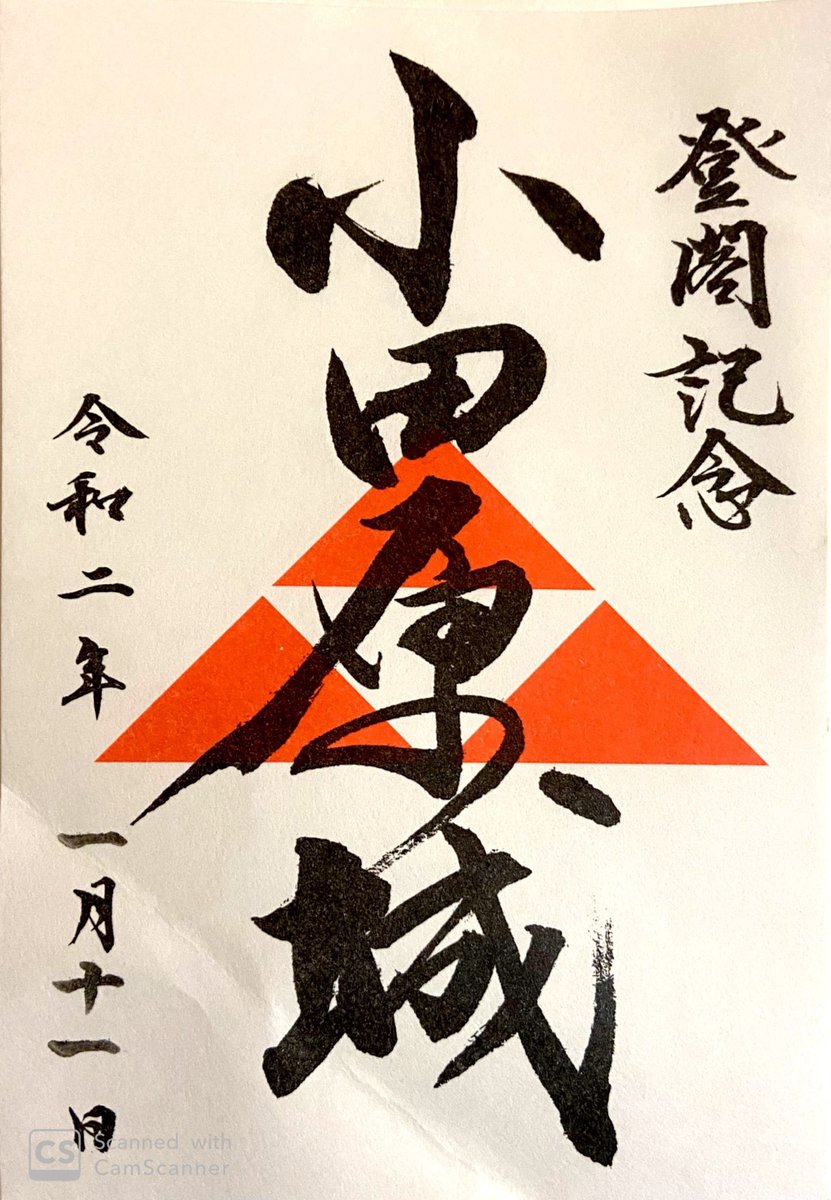 登閣記念
小田原城
令和二年 一月十一日
CS Scanned with
CamScanner